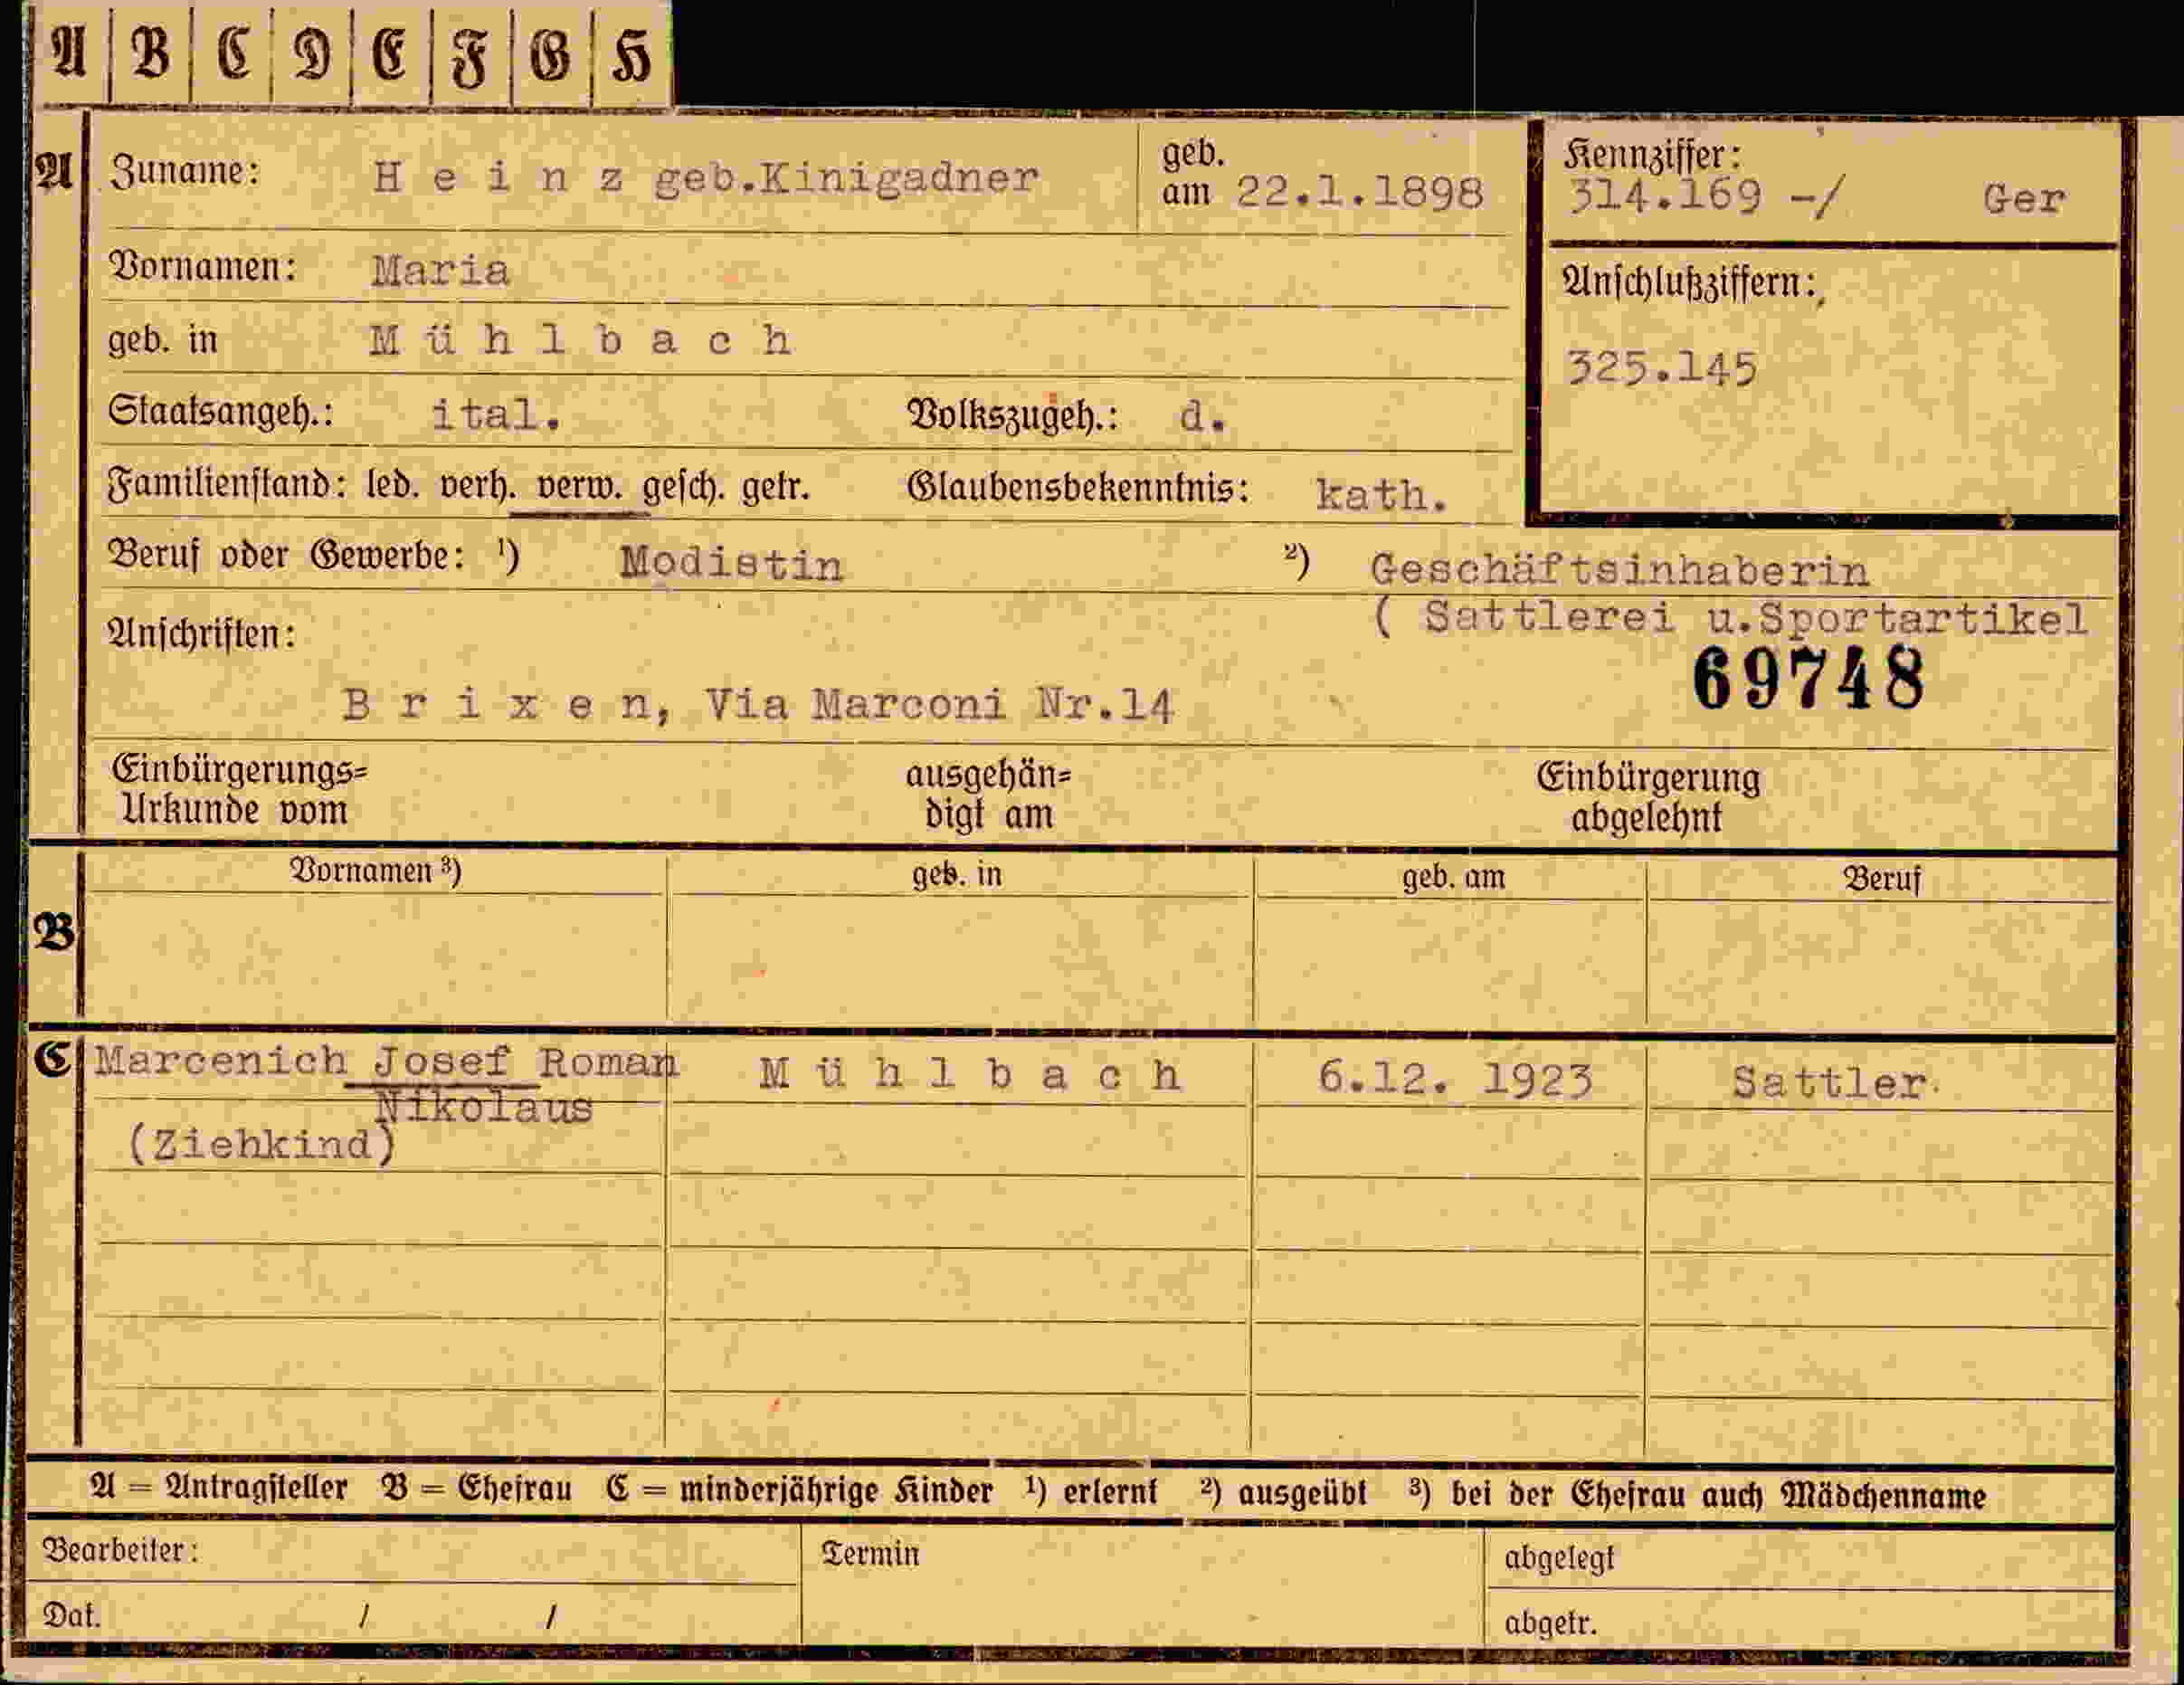 A B C D E F G H
A Zuname: H e i n z geb.Kinigadner geb. am 22.1.1898
Kennziffer: 314.169 -/ Ger
Vornamen: Maria
Anschlußziffern:
geb. in M ü h l b a c h
325.145
Staatsangeh.: ital. Volkszugeh.: d.
Familienstand: led. verh. verw. gesch. getr. Glaubensbekenntnis: kath.
Beruf oder Gewerbe: ¹) Modistin ²) Geschäftsinhaberin
( Sattlerei u.Sportartikel
Anschriften:
69748
B r i x e n, Via Marconi Nr.14
Einbürgerungs= ausgehän= Einbürgerung
Urkunde vom digt am abgelehnt
Vornamen ³) geb. in geb. am Beruf
B
C Marcenich Josef Roman M ü h l b a c h 6.12. 1923 Sattler
Nikolaus
(Ziehkind)
A = Antragsteller B = Ehefrau C = minderjährige Kinder ¹) erlernt ²) ausgeübt ³) bei der Ehefrau auch Mädchenname
Bearbeiter: Termin abgelegt
Dat. / / abgetr.